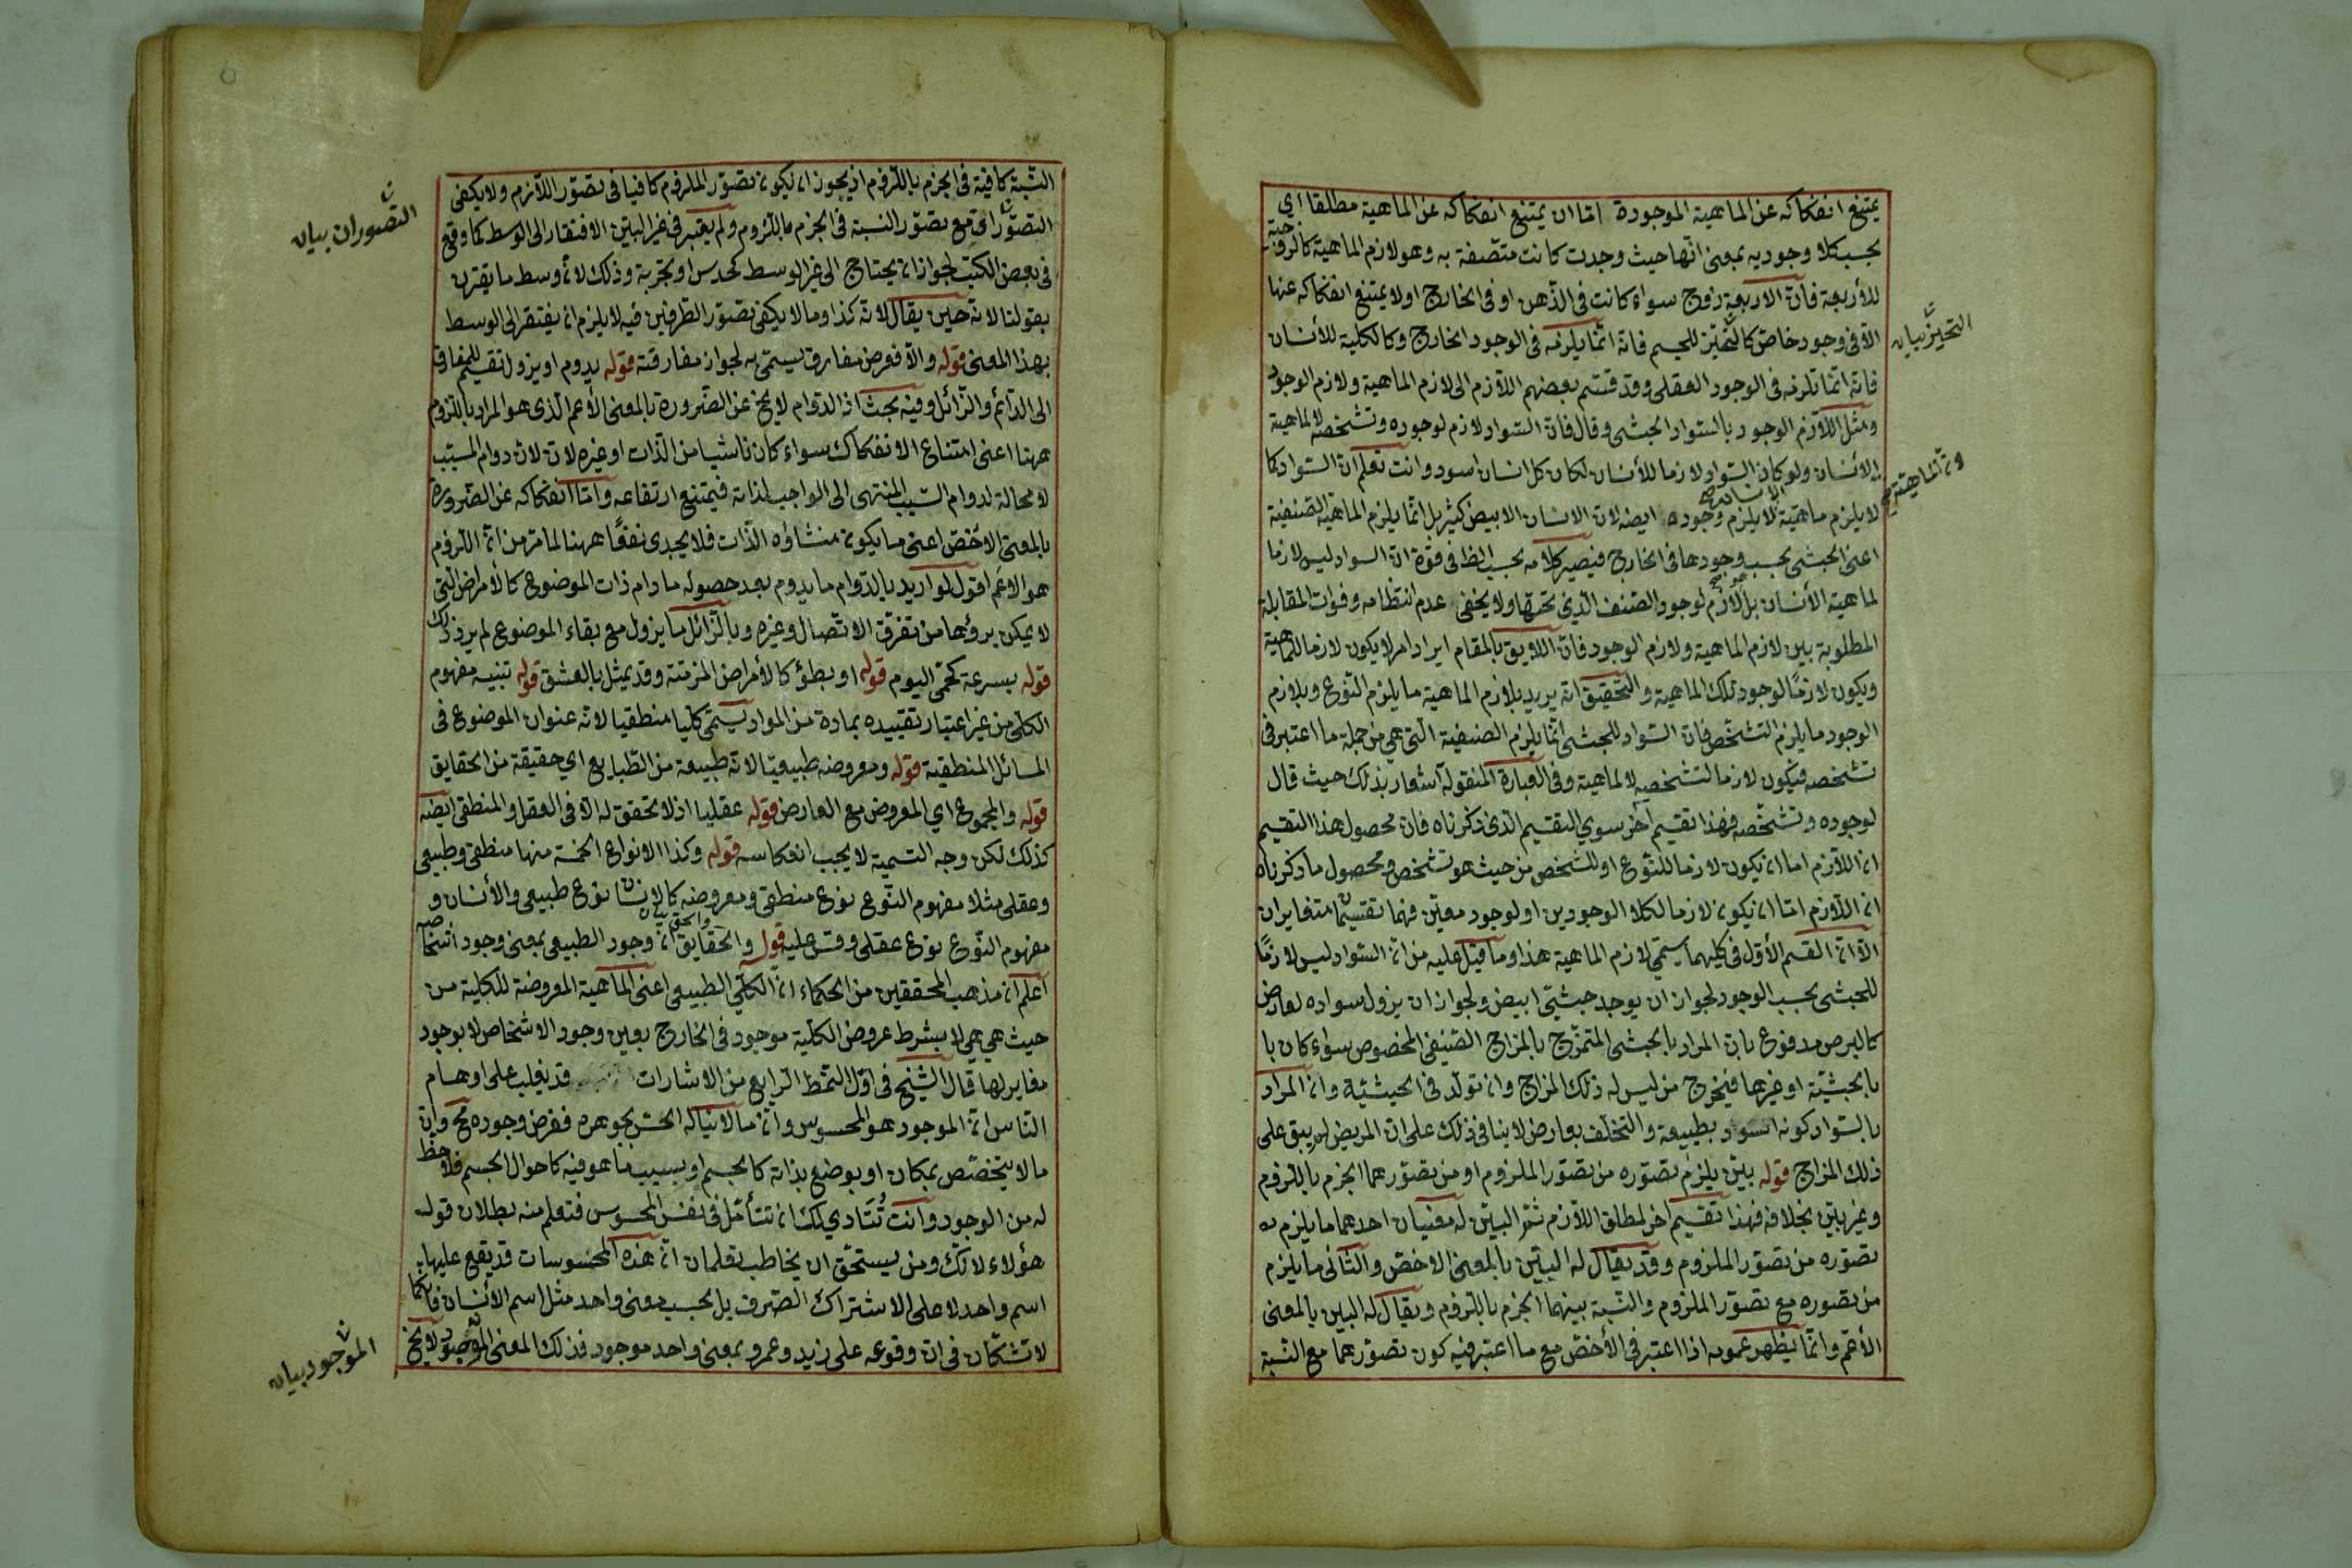 يمتنع انفكاكه عن الماهية الموجودة امّا ان يمتنع انفكاكه عن الماهية مطلقا اى
بحسب كلا وجوديه بمعنى انّها حيث وجدت كانت متّصفة به وهو لازم الماهية كالزوجية
للأربعة فانّ الاربعة زوج سواء كانت فى الذّهن او فى الخارج اولا يمتنع انفكاكه عنها
الّا فى وجود خاصّ كالتّحيّز للجسم فانّه انّما يلزمه فى الوجود الخارج وكالكلية للأنسان
التحيّز بيان
فانّه انّما تلزمه فى الوجود العقلى وقد قسّم بعضهم اللّازم الى لازم الماهية ولازم الوجود
ومثل اللّازم الوجود بالسّواد الحبشى وقال فانّ السّواد لازم لوجوده وتشخّصه لا لماهية
الانسان ولو كان السّواد لازما للأنسان لكان كل انسان اسود وانت تعلم انّ السّواد كما
لا يلزم ماهية الانسان لا يلزم وجوده ايضه لانّ الانسان الابيض كثير بل انّما يلزم الماهية الصّنفية
اعنى الحبشى بحسب وجودها فى الخارج فيصير كلامه بحسب الظ فى قوّة انّ السواد ليس لازما
لماهية الأنسان بل لازم لوجود الصّنف الّذى تحتها ولا يخفى عدم انتظامه وفوات المقابلة
المطلوبة بين لازم الماهية ولازم الوجود فانّ اللايق بالمقام ايراد امر لا يكون لازما للماهية
ويكون لازمًا لوجود تلك الماهية والتّحقيق انّه يريد بلازم الماهية ما يلزم النّوع وبلازم
الوجود ما يلزم التشخّص فانّ السّواد للحبشى انّما يلزم الصنفية الّتى هى من جملة ما اعتبر فى
تشخّصه فيكون لازما لتشخّصه لا لماهية وفى العبارة المنقولة اشعار بذلك حيث قال
لوجوده وتشخّصه فهذا تقسيم آخر سوى التقسيم الّذى ذكرناه فانّ محصول هذا التقسيم
انّ اللّازم اما ان يكون لازما للنّوع او للشّخص من حيث هو تشخّص ومحصول ما ذكرناه
انّ اللّازم امّا ان يكون لازما لكلا الوجودين او لوجود معيّن فهما تقسيمان متغايران
الّا انّ القسم الأوّل فى كليهما يسمّى لازم الماهية هذا وما قيل عليه من انّ السّواد ليس لازمًا
للحبشى بحسب الوجود لجواز ان يوجد حبشىّ ابيض ولجواز ان يزول سواده لعارض
كالبرص مدفوع بانّ المراد بالحبشى المتمزّج بالمزاج الصّنفى المخصوص سواء كان با
بالحبشيّة او غيرها فيخرج من ليس له ذلك المزاج وان تولّد فى الحيشيّة وانّ المراد
بالسّواد كونه اسود بطبيعة والتخلّف بعارض لا ينافى ذلك على انّ المريض لم يبق على
ذلك المزاج قوله بيّن يلزم تصوّره من تصوّر الملزوم او من تصوّرهما الجزم باللّزوم
وغير بيّن بخلافه فهذا تقسيم اخر لمطلق اللّازم ثمّ البيّن له معنيان احدهما ما يلزم به
تصوّره من تصوّر الملزوم وقد يقال له البيّن بالمعنى الاخصّ والثّانى ما يلزم
من تصوره مع تصوّر الملزوم والنّسبة بينهما الجزم باللّزوم ويقال له البين بالمعنى
الأعّم وانّما يظهر عمومه اذا اعتبر فى الأخصّ مع ما اعتبر فيه كون تصوّرهما مع النّسبة
النّسبة كافية فى الجزم باللّزوم اذ يجوز ان يكون تصوّر الملزوم كافيا فى تصوّر اللّازم ولا يكفى
التصوّران مع تصوّر النسبة فى الجزم باللّزوم ولم يعتبر فى غير البيّن الافتقار الى الوسط كما وقع
التصّوران بيان
فى بعض الكتب لجواز ان يحتاج الى غير الوسط كحدس او تجربة وذلك لانّ وسط ما يقترن
بقولنا لانّه حين يقال لانّه كذا وما لا يكفى تصوّر الطّرفين فيه لا يلزم ان يفتقر الى الوسط
بهذا المعنى قوله والّا فعرض مفارق يسمّى به لجواز مفارقته قوله يدوم او يزول تقسيم للمفارق
الى الدّائم والزّائل وفيه بحث اذ الدّوام لا يخ عن الضّرورة بالمعنى الأعم الّذى هو المراد باللّزوم
ههنا اعنى امتناع الانفكاك سواء كان ناشيا من الذّات او غيره لانّ دوام المسبّب
لا محالة لدوام السّبب المنتهى الى الواجب لذاته فيمتنع ارتفاعه وامّا انفكاكه عن الضّرورة
بالمعنى الاخصّ اعنى ما يكون منشاؤه الذّات فلا يجدى نفعًا ههنا لما مرّ من انّ اللّزوم
هو الاعّم اقول لو اريد بالدّوام ما يدوم بعد حصوله ما دام ذات الموضوع كالأمراض الّتى
لا يمكن برؤها من تفرّق الاتّصال وغيره وبالزّائل ما يزول مع بقاء الموضوع لم يرد ذلك
قوله بسرعة كحمّى اليوم قوله او بطؤ كالأمراض المزمنة وقد يمثل بالعشق قوله تنبيه مفهوم
الكلّى من غير اعتبار تقييده بمادة من المواد يسمّى كلّيا منطقيا لانّه عنوان الموضوع فى
المسائل المنطقية قوله ومعروضه طبيعيّا لانّه طبيعة من الطّبايع اى حقيقة من الحقايق
قوله والمجموع اى المعروض مع العارض قوله عقليا اذ لا تحقق له الّا فى العقل والمنطقى ايضه
كذلك لكن وجه التسمية لا يجب انعكاسه قوله وكذا الانواع الخمسة منها منطقى وطبيعى
وعقلى مثلا مفهوم النّوع نوع منطقى ومعروضه كالانسان نوع طبيعى والأنسان و
مفهوم النّوع نوع عقلى وقس عليه قوله والحقايق انّ وجود الطبيعى بمعنى وجود أشخاصه
والحق بيان
أعلم انّ مذهب المحققين من الحكماء انّ الكلّى الطبيعى اعنى الماهية المعروضة للكلية من
حيث هى هى لا بشرط عروض الكلّية موجود فى الخارج بعين وجود الاشخاص لا بوجود
مغاير لها قال الشّيخ فى اوّل النّمط الرّابع من الاشارات قد يغلب على اوهام
النّاس انّ الموجود هو المحسوس وانّ ما لا يناله الحسّ بجوهره ففرض وجوده مح وانّ
ما لا يتخصّص بمكان او بوضع بذاته كالجسم او بسبب ما هو فيه كاحوال الجسم فلا حظ
له من الوجود وانت تتادى لك ان تتأمّل فى نفس المحسوس فتعلم منه بطلان قول
هؤلاء لانّك ومن يستحّق ان يخاطب تعلمان انّ هذه المحسوسات قد يقع عليها
اسم واحد لا على الاشتراك الصّرف بل بحسب معنى واحد مثل اسم الانسان فانّكما
لا تشكّان فى انّ وقوعه على زيد وعمرو بمعنى واحد موجود فذلك المعنى الموجود لا يخ
الموجود بيان